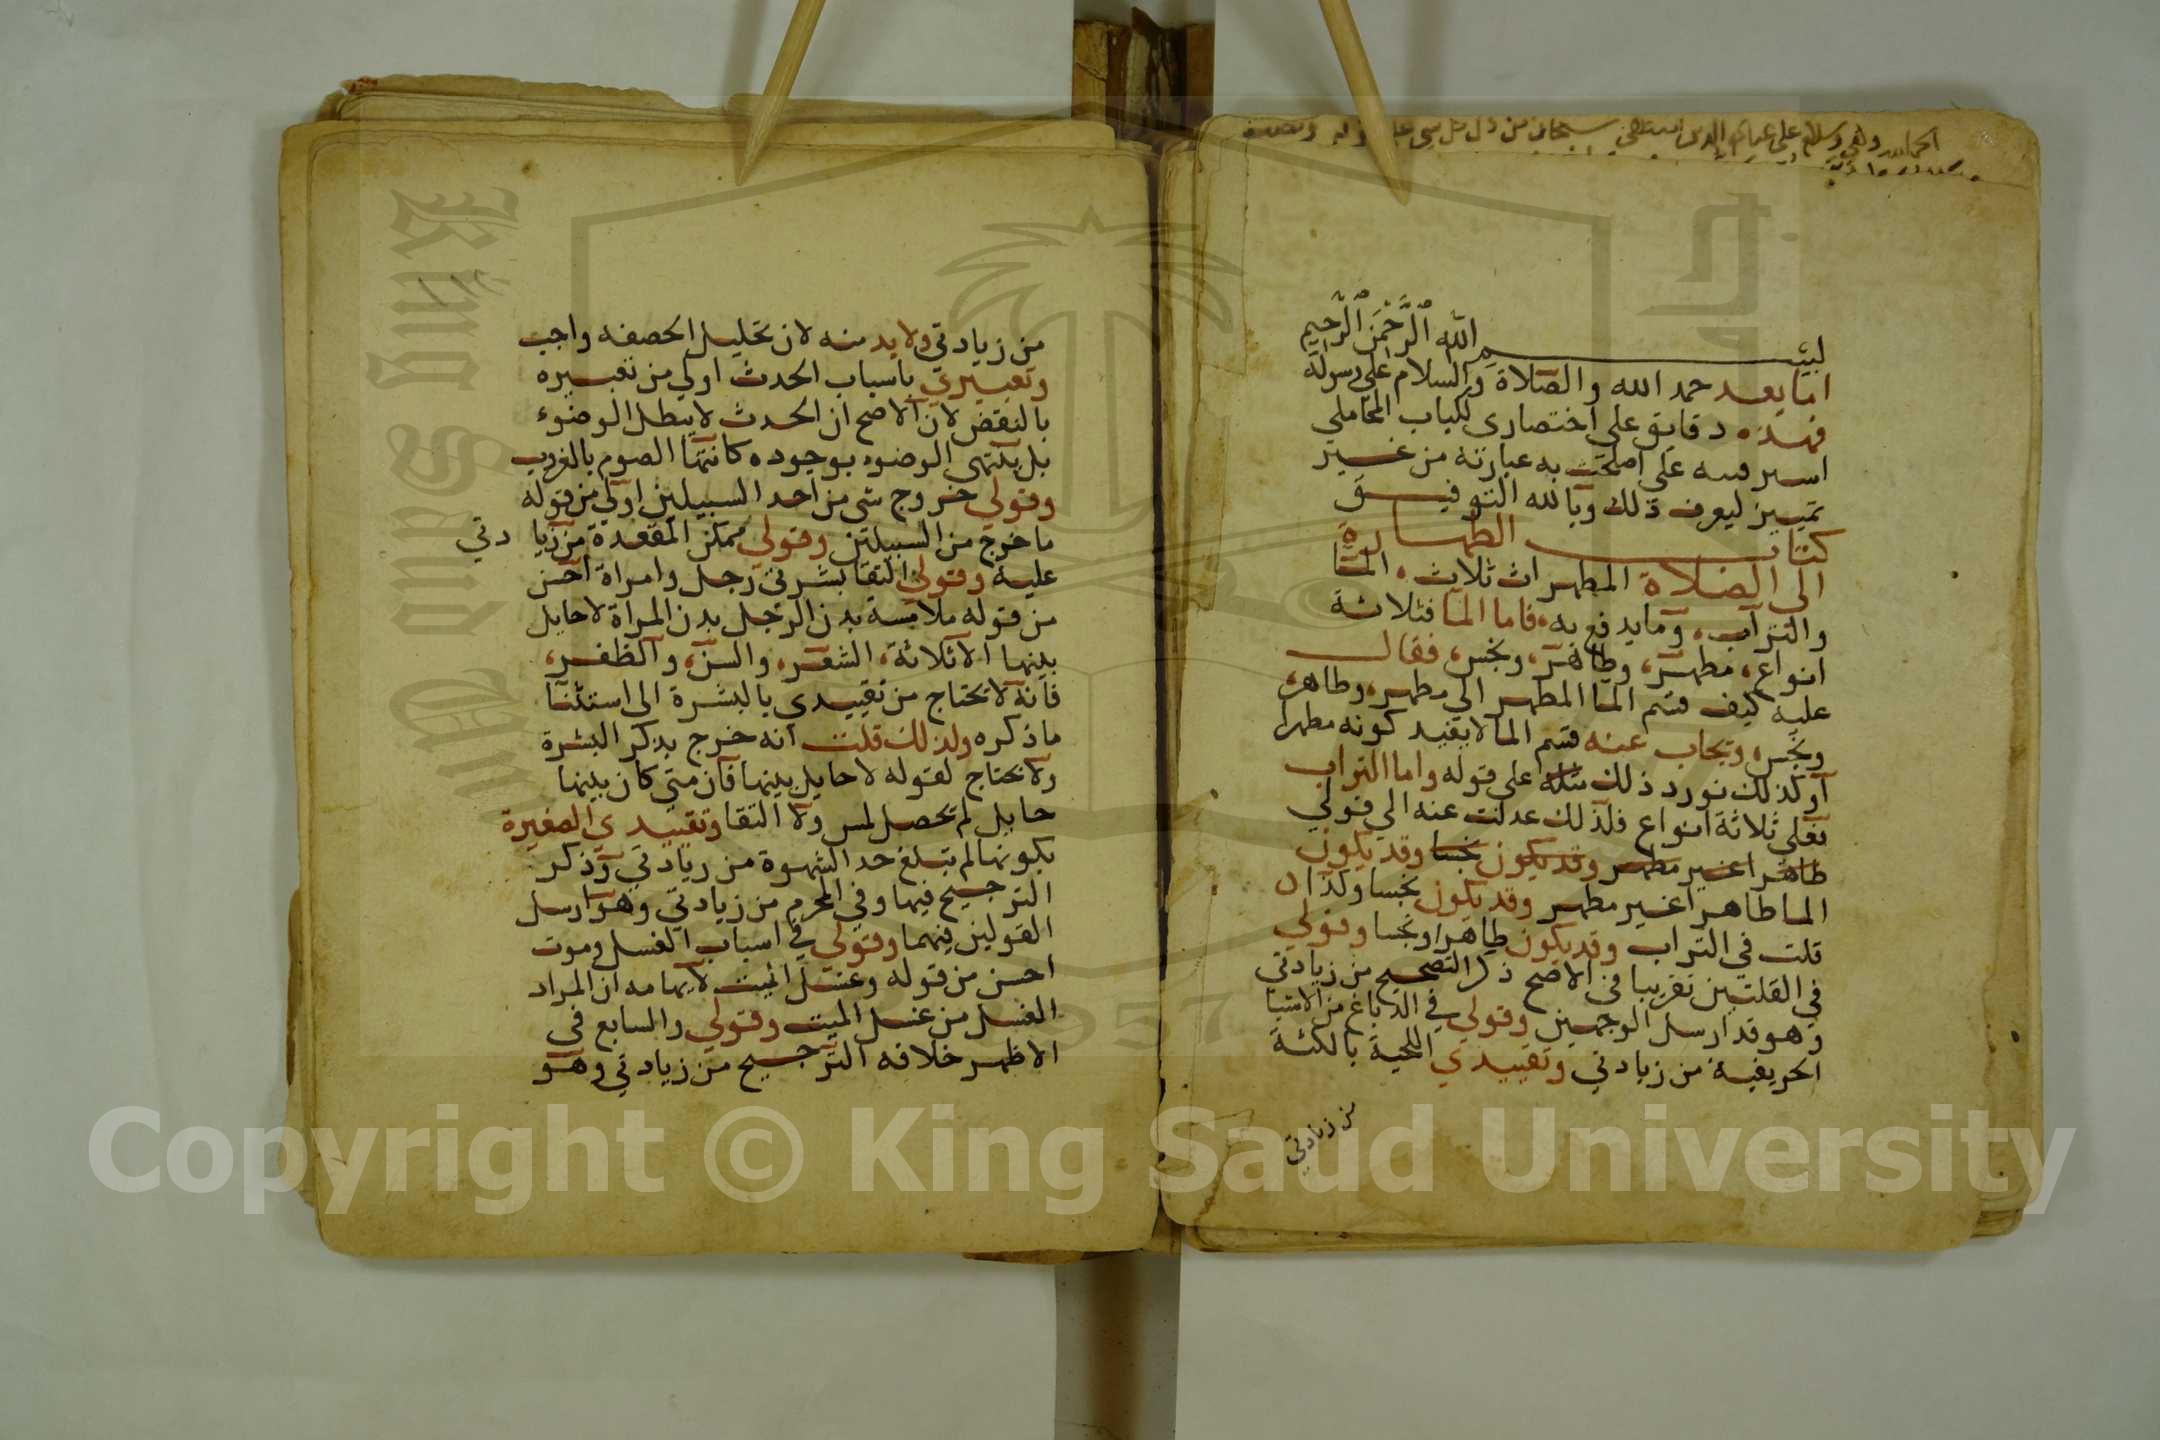 الحمد لله وكفى وسلام على عباده الذين اصطفى
بسم الله الرحمن الرحيم
اما بعد حمد الله والصلاة والسلام على رسوله
فهذه دقايق على اختصارى للباب المحاملي
اصلحت به عبارته من غير
تمييز ليعرف ذلك وبالله التوفيق
كتاب الطهارة
الى الصلاة المطهرات ثلاث، الما
والتراب، وما يدفع به، فاما الما فثلاثة
انواع، مطهر، وطاهر، ونجس، فقال
عليه كيف قسم الما المطهر الى مطهر، وطاهر،
ونجس، ويجاب عنه قسم الما لا بقيد كونه مطهرا
او كذلك نورد ذلك مثله على قوله واما التراب
فعلى ثلاثة انواع فلذلك عدلت عنه الى قولي
طاهرا غير مطهر وقد يكون نجسا وقد يكون
الما طاهرا غير مطهر وقد يكون نجسا وكذا ان
قلت في التراب وقد يكون طاهرا ونجسا وقولي
في القلتين تقريبا في الاصح ذكر التصحيح من زيادتي
وهو قد ارسل الوجهين وقولي في الدباغ من الاشيا
الحريفية من زيادتي وتقييدي اللحية بالكثة
من زيادتي
من زيادتي ولا بد منه لان تخليل الخفيفه واجب
وتعبيري باسباب الحدث اولى من تعبيره
بالنقض لان الاصح ان الحدث لا يبطل الوضوء
بل ينتهى الوضوء بوجوده كانتها الصوم بالغروب
وقولي خروج شي من احد السبيلين اولى من قوله
ما خرج من السبيلين وقولي ممكن المقعدة من زيادتي
عليه وقولي التقا بشرتي رجل وامراة احسن
من قوله ملامسة بدن الرجل بدن المراة لا حايل
بينهما الا ثلاثة، الشعر، والسن، والظفر،
فانه لا تحتاج من تقييدي بالبشرة الى استثنا
ما ذكره ولذلك قلت انه خرج بذكر البشرة
ولا تحتاج لقوله لا حايل بينهما فان متى كان بينهما
حايل لم تحصل لمس ولا التقا وتقييدي الصغيرة
بكونها لم تبلغ حد الشهوة من زيادتي وذكر
الترجيح فيها وفي المحرم من زيادتي وهو ارسل
القولين فيهما وقولي في اسباب الغسل وموت
احسن من قوله وغسل الميت لايهامه ان المراد
الغسل من غسل الميت وقولي والسابع في
الاظهر خلافه الترجيح من زيادتي وهو
King Saud University
1957
Copyright © King Saud University